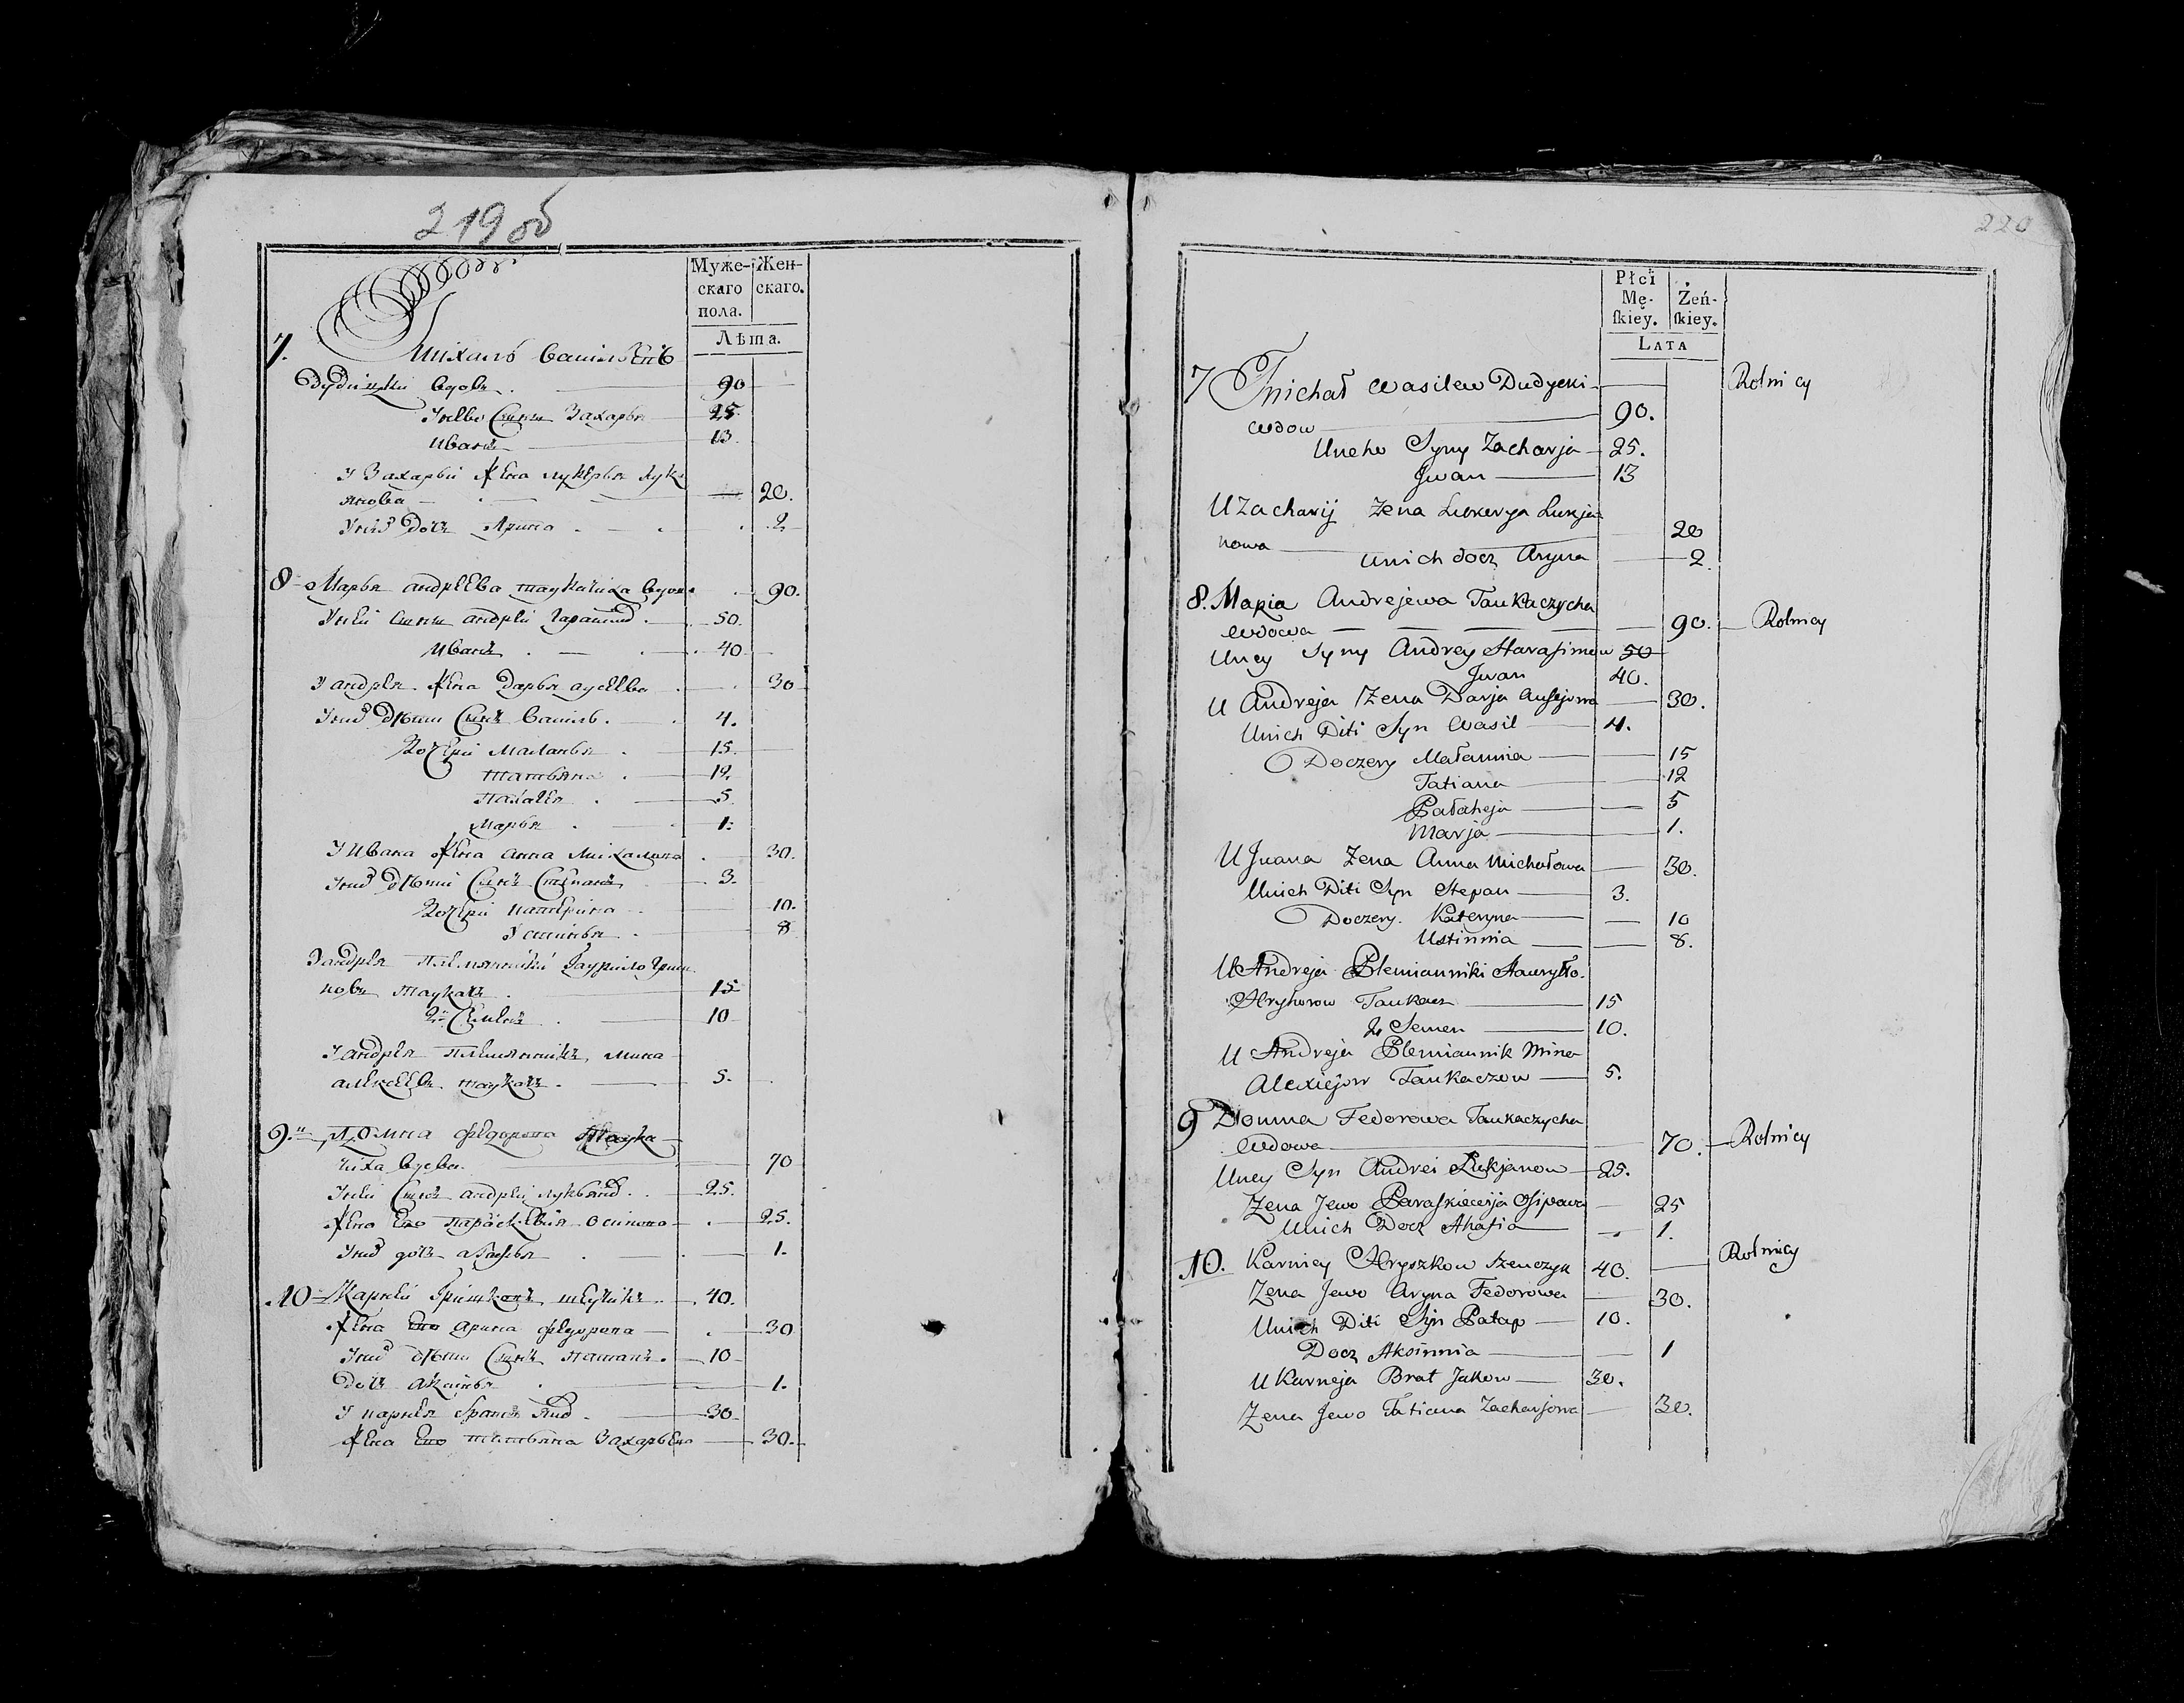 219 об
Муже-
скаго
пола.
Жен-
скаго.
Лѣта.
7.
Михалъ Василевъ
Дудицки вдовъ 90
Унево Сыны Захарья 25
Иванъ 13
У Захарьи Жена Лукерья Лук-
янова 20.
Унихъ дочь Арина 2
8 Марья Андреева Таукачиха вдова 90.
Уней Сыны Андрей 50.
Иванъ 40
У Андрея Жена Дарья 30
Унихъ Дѣти Сынъ Василь 4.
Дочери Маланья 15
Татьяна 12.
5
Марья 1.
У Ивана Жена Анна Михалова 30.
Унихъ Дѣти Сынъ Степанъ 3.
Дочери Катерина 10.
Устинья 8
У Андрея Племянники Гаурило Григо-
ровъ Таукачъ 15
2й Семенъ 10
У Андрея Племянникъ Мина
Алексеевъ Таукачъ 5.
9. Домна Федорова Таука-
чиха вдова 70
Уней Сынъ Андрей 25.
Жена Ево Параскевья Осипова 25.
Унихъ дочь Агафья 1.
10 Карней Гришковъ 40.
Жена Ево Арина Федорова 30
Унихъ Дѣти Сынъ Патапъ 10
Дочь Аксинья 1.
У Карнея Братъ 30
Жена Ево Татьяна Захарьева 30.
220
Płci
Mę-
ſkiey.
Żeń-
ſkiey.
Lata
7 Michał Wasilew Dudycki Rolnicy
Wdow 90.
Uneho Syny Zacharja 25.
Jwan 13
U Zacharij Zena Lukerya Lukja-
nowa 20
Unich docz Aryna 2.
8. Maria Andrejewa Taukaczycha
Wdowa 90. Rolnicy
Uney Syny Andrey Harasimow 50
Jwan 40.
U Andreja Zena Darja Ausiejowa 30.
Unich Diti Syn Wasil 4.
Doczery Małannia 15
Tatiana 12
Pałaheja 5
Marja 1.
U Jwana Zena Anna Michałowa 30.
Unich Diti Syn Stepan 3.
Doczery. Kateryna 10
Ustinnia 8.
U Andreja Plemianniki Hawryło.
Hryhorow Taukacz 15
2 Semen 10.
U Andreja Plemiannik Mina
Alexiejow Taukaczow 5.
9 Domna Fedorowa Taukaczycha
Wdowa 70. Rolnicy
Uney Syn Andrei Łukjanow 25.
Zena Jewo Paraskiewija Osipowa 25
Unich Docz Ahafia 1.
10. Karniey Hryszkow Szewczyk 40. Rolnicy
Zena Jewo Aryna Fedorowa 30.
Unich Diti Syn Patap 10.
Docz Aksinnia 1
U Karneja Brat Jakow 30.
Zena Jewo Tatiana Zacharjowa 30.